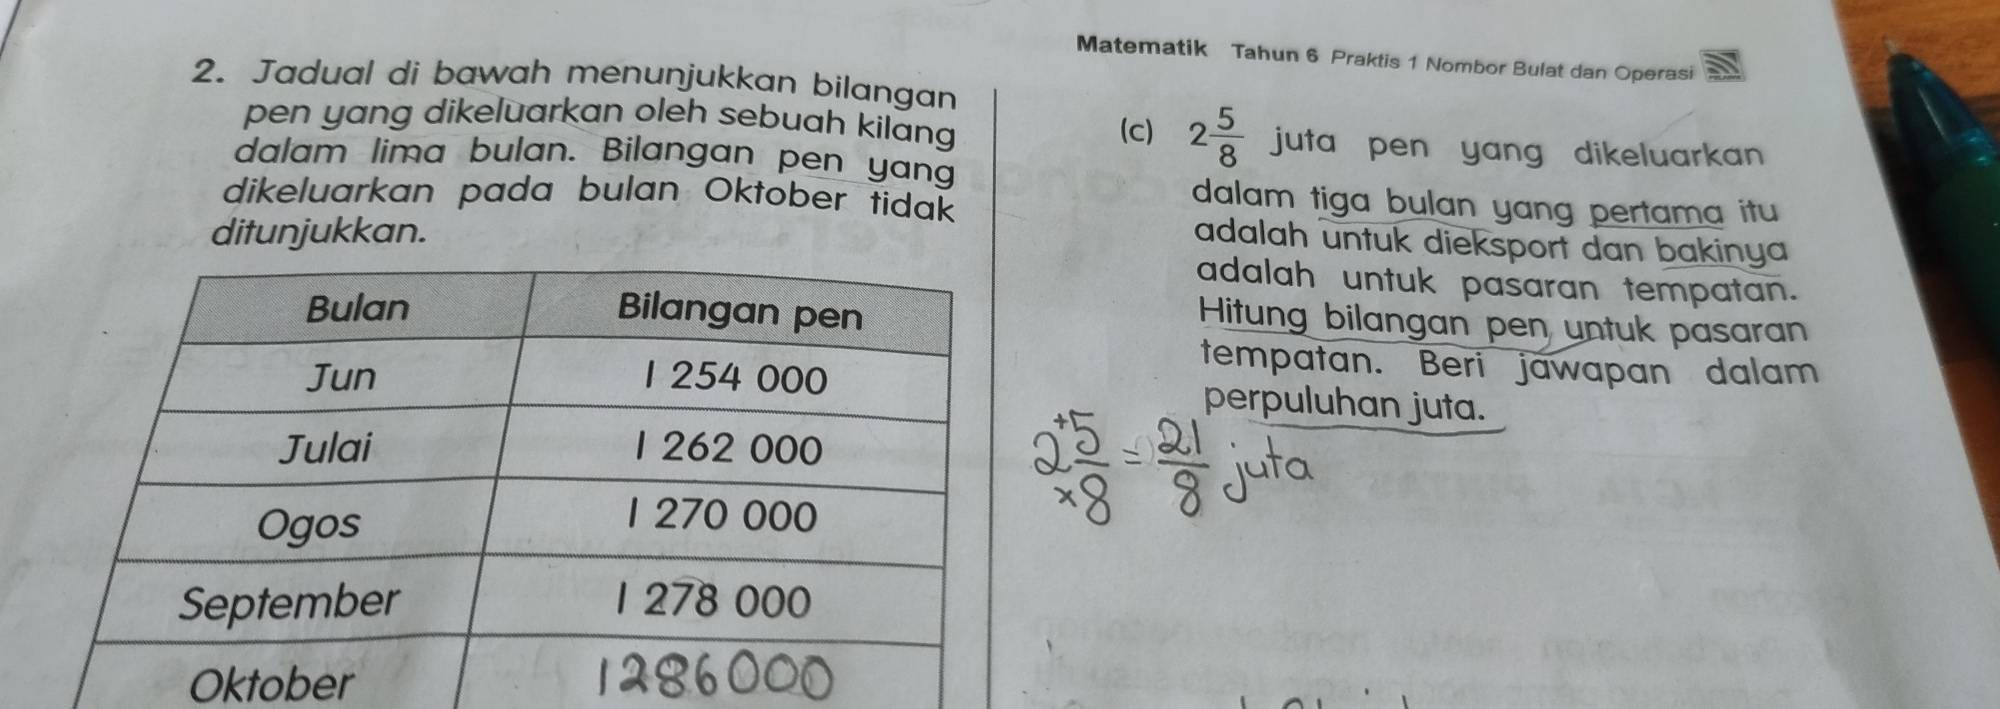 Matematik Tahun 6 Praktis 1 Nombor Bulat dan Operasi
2. Jadual di bawah menunjukkan bilangan
pen yang dikeluarkan oleh sebuah kilang
dalam lima bulan. Bilangan pen yang
dikeluarkan pada bulan Oktober tidak
ditunjukkan.
Bulan Bilangan pen
Jun 1 254 000
Julai 1 262 000
Ogos 1 270 000
September 1 278 000
Oktober 1286000
(c) 2 5/8 juta pen yang dikeluarkan
dalam tiga bulan yang pertama itu
adalah untuk dieksport dan bakinya
adalah untuk pasaran tempatan.
Hitung bilangan pen untuk pasaran
tempatan. Beri jawapan dalam
perpuluhan juta.
2 +5/×8 = 21/8 juta